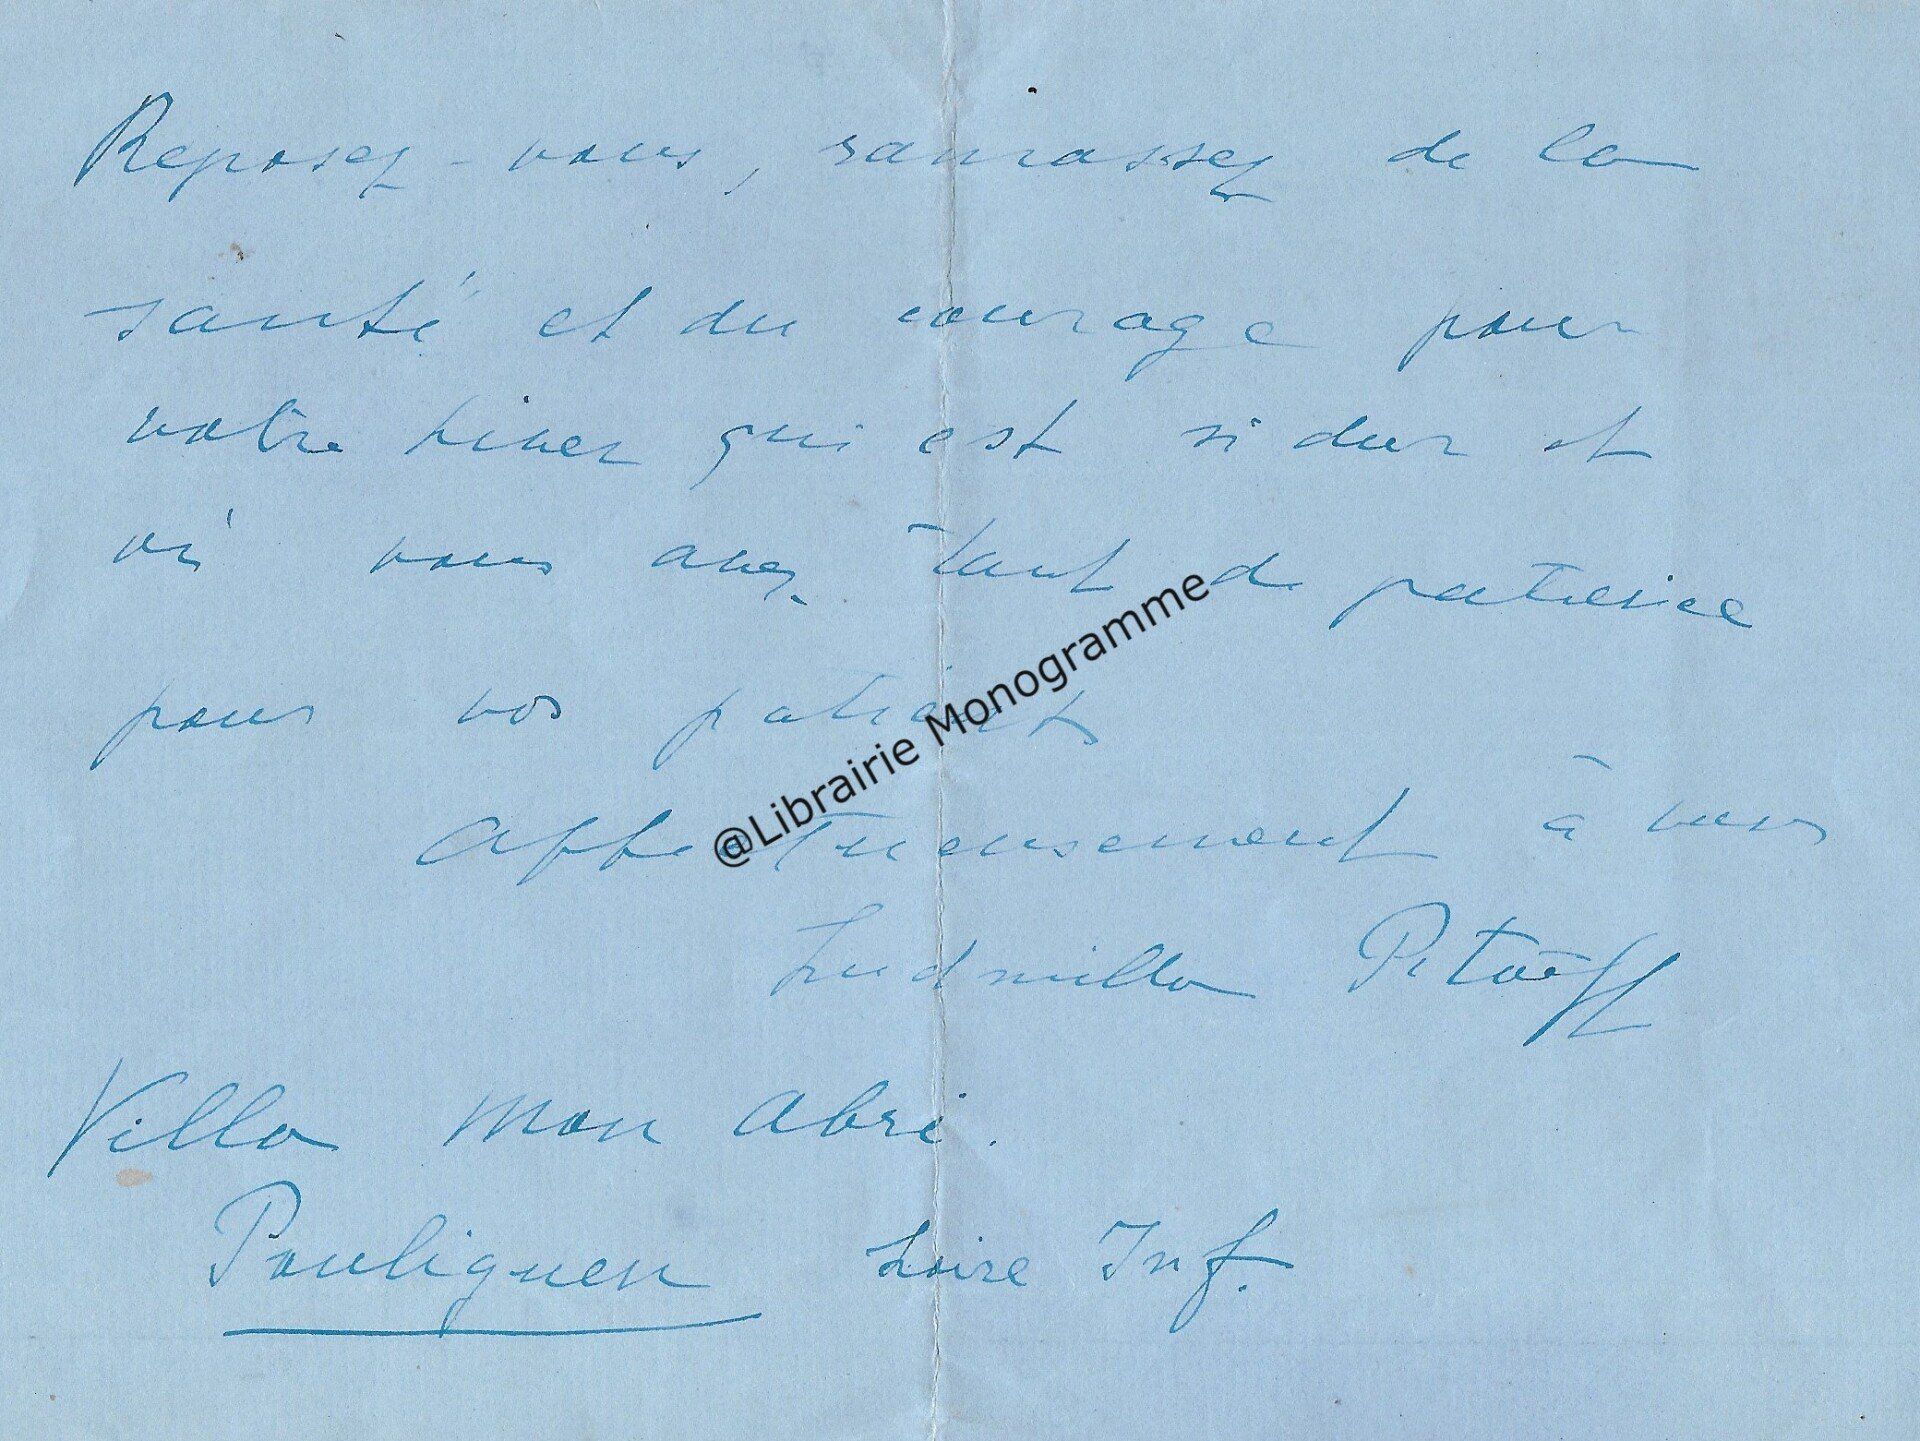 Reposez-vous, ramassez de la
santé et du courage pour
votre hiver qui est si dur et
où vous avez tant de patience
pour vos patients
Affectueusement à vous
Ludmilla Pitoëff
Villa Mon Abri.
Pouliguen Loire Inf.
@Librairie Monogramme